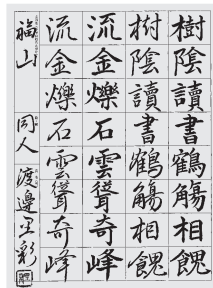 樹陰讀書鶴觴相餽
樹陰讀書鶴觴相餽
流金爍石雲聳奇峰
流金爍石雲聳奇峰
福山 同人 渡邊星彩